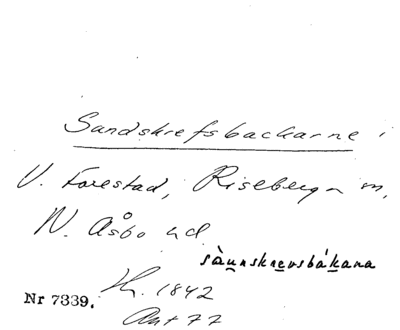 Sandskrefsbackarne i
V. Forestad, Riseberga sn,
N. Åsbo hd
sàunskrevsbákana
Nr 7339.
1842
Ant 77